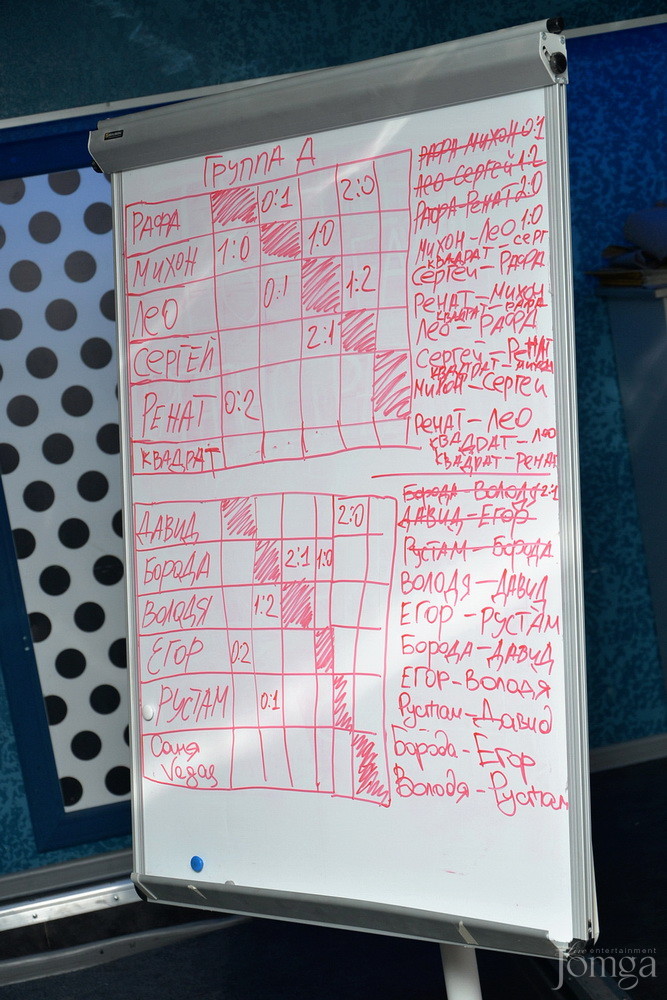 ГРУППА Д
РАФА 0:1 2:0
МИХОН 1:0 1:0
ЛЕО 0:1 1:2
СЕРГЕЙ 2:1
РЕНАТ 0:2
КВАДРАТ
РАФА-МИХОН 0:1
ЛЕО-СЕРГЕЙ 1:2
РАФА-РЕНАТ 2:0
МИХОН-ЛЕО 1:0
КВАДРАТ-СЕРГ
СЕРГЕЙ-РАФА
РЕНАТ-МИХОН
КВАДРАТ-РАФА
ЛЕО-РАФА
СЕРГЕЙ-РЕНАТ
КВАДРАТ-МИХОН
МИХОН-СЕРГЕЙ
РЕНАТ-ЛЕО
КВАДРАТ-ЛЕО
КВАДРАТ-РЕНАТ
ДАВИД 2:0
БОРОДА 2:1 1:0
ВОЛОДЯ 1:2
ЕГОР 0:2
РУСТАМ 0:1
Саня
Vegas
БОРОДА-ВОЛОДЯ 2:1
ДАВИД-ЕГОР
РУСТАМ-БОРОДА
ВОЛОДЯ-ДАВИД
ЕГОР-РУСТАМ
БОРОДА-ДАВИД
ЕГОР-ВОЛОДЯ
Рустам-Давид
Борода-Егор
Володя-Рустам
live entertainment
Jomga